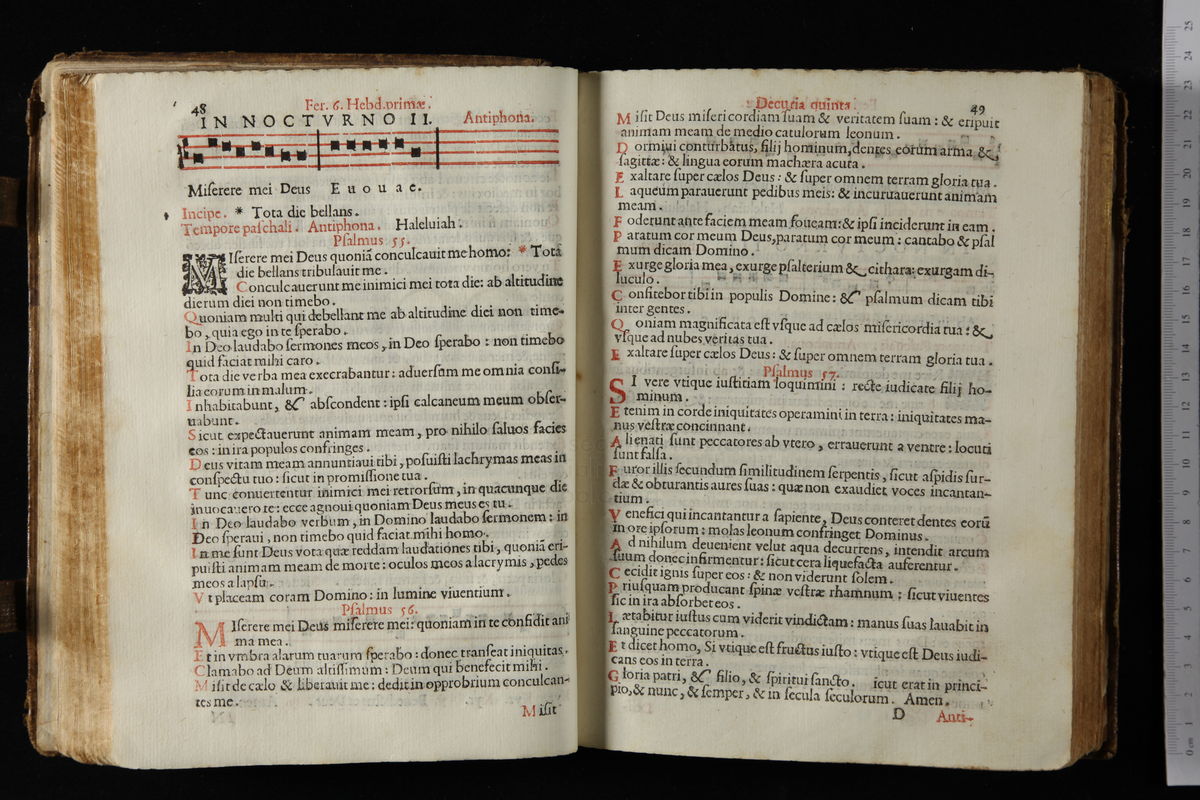 48
Fer. 6. Hebd. primæ.
IN NOCTVRNO II. Antiphona.
Miſerere mei Deus E u o u a e.
Incipe. * Tota die bellans.
Tempore paſchali. Antiphona. Haleluiah.
Pſalmus 55.
MIſerere mei Deus quoniā conculcauit me homo: * Tota
die bellans tribulauit me.
Conculcauerunt me inimici mei tota die: ab altitudine
dierum diei non timebo.
Quoniam multi qui debellant me ab altitudine diei non time-
bo, quia ego in te ſperabo.
In Deo laudabo ſermones meos, in Deo ſperabo: non timebo
quid faciat mihi caro.
Tota die verba mea execrabantur: aduerſum me omnia conſi-
lia eorum in malum.
Inhabitabunt, & abſcondent: ipſi calcaneum meum obſer-
uabunt.
Sicut expectauerunt animam meam, pro nihilo ſaluos facies
eos: in ira populos confringes.
Deus vitam meam annuntiaui tibi, poſuiſti lachrymas meas in
conſpectu tuo: ſicut in promiſſione tua.
Tunc conuertentur inimici mei retrorſum, in quacunque die
inuocauero te: ecce agnoui quoniam Deus meus es tu.
In Deo laudabo verbum, in Domino laudabo ſermonem: in
Deo ſperaui, non timebo quid faciat mihi homo.
In me ſunt Deus vota quæ reddam laudationes tibi, quoniā eri-
puiſti animam meam de morte: oculos meos a lacrymis, pedes
meos a lapſu.
Vt placeam coram Domino: in lumine viuentium.
Pſalmus 56.
MIſerere mei Deus miſerere mei: quoniam in te confidit ani
ma mea.
Et in vmbra alarum tuarum ſperabo: donec tranſeat iniquitas.
Clamabo ad Deum altiſſimum: Deum qui benefecit mihi.
Miſit de cælo & liberauit me: dedit in opprobrium conculcan-
tes me.
Miſit
Decuria quinta.
49
Miſit Deus miſericordiam ſuam & veritatem ſuam: & eripuit
animam meam de medio catulorum leonum.
Dormiui conturbatus, filij hominum, dentes eorum arma &
ſagittæ: & lingua eorum machæra acuta.
Exaltare ſuper cælos Deus: & ſuper omnem terram gloria tua.
Laqueum parauerunt pedibus meis: & incuruauerunt animam
meam.
Foderunt ante faciem meam foueam: & ipſi inciderunt in eam.
Paratum cor meum Deus, paratum cor meum: cantabo & pſal
mum dicam Domino.
Exurge gloria mea, exurge pſalterium & cithara: exurgam di-
luculo.
Confitebor tibi in populis Domine: & pſalmum dicam tibi
inter gentes.
Qoniam magnificata eſt vſque ad cælos miſericordia tua: &
vſque ad nubes veritas tua.
Exaltare ſuper cælos Deus: & ſuper omnem terram gloria tua.
Pſalmus 57.
SI vere vtique iuſtitiam loquimini: recte iudicate filij ho-
minum.
Etenim in corde iniquitates operamini in terra: iniquitates ma-
nus veſtræ concinnant.
Alienati ſunt peccatores ab vtero, errauerunt a ventre: locuti
ſunt falſa.
Furor illis ſecundum ſimilitudinem ſerpentis, ſicut aſpidis ſur-
dæ & obturantis aures ſuas: quæ non exaudiet voces incantan-
tium.
Venefici qui incantantur a ſapiente, Deus conteret dentes eorū
in ore ipſorum: molas leonum confringet Dominus.
Ad nihilum deuenient velut aqua decurrens, intendit arcum
ſuum donec infirmentur: ſicut cera liquefacta auferentur.
Cecidit ignis ſuper eos: & non viderunt ſolem.
Priuſquam producant ſpinæ veſtræ rhamnum: ſicut viuentes
ſic in ira abſorbet eos.
Lætabitur iuſtus cum viderit vindictam: manus ſuas lauabit in
ſanguine peccatorum.
Et dicet homo, Si vtique eſt fructus iuſto: vtique eſt Deus iudi-
cans eos in terra.
Gloria patri, & filio, & ſpiritui ſancto. icut erat in princi-
pio, & nunc, & ſemper, & in ſecula ſeculorum. Amen.
D Anti-